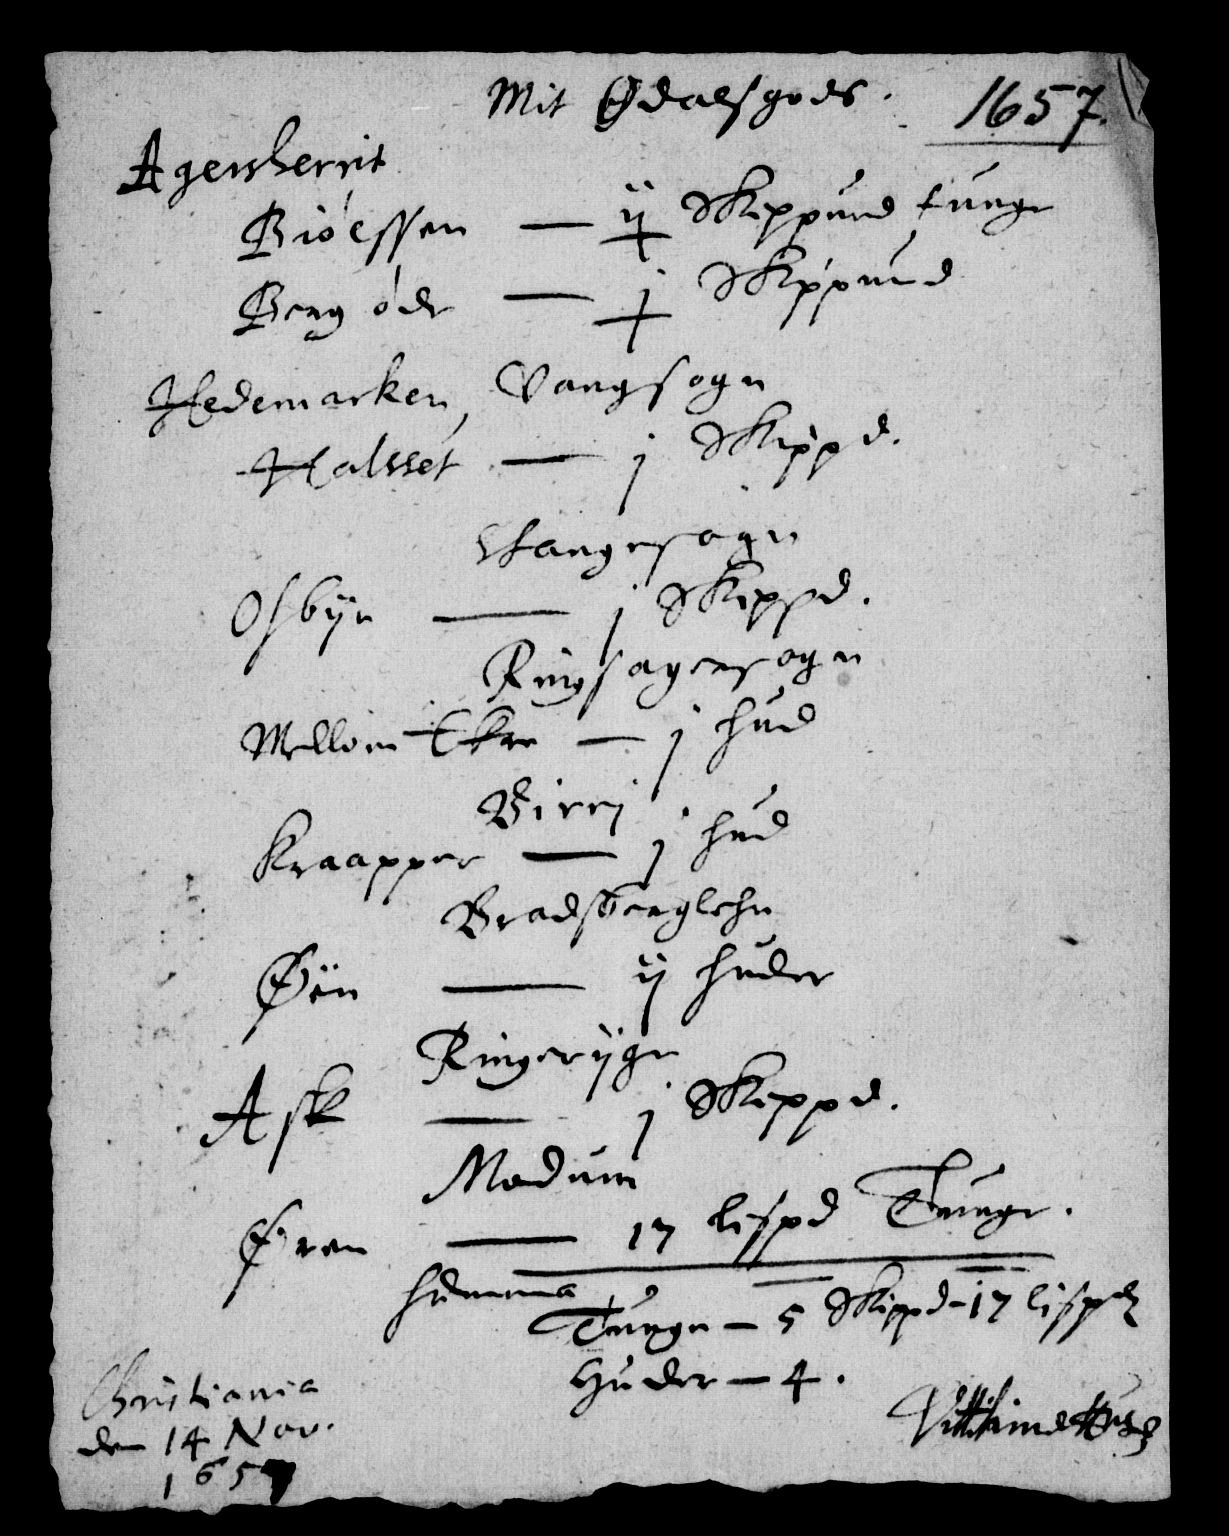 Mit Ødalsgods. 1657.
Agersherrit
Biølssen — ij Skippund tunge
Berg øde — j Skippund
Hedemarken, Vangsogn
Halsset — j Skippd.
Stangesogn
Osbÿe — j Skippd.
Ringsagersogn
Mellom Ekre — j hud
Birrj
Kraapper — j hud
Bradsberglehn
Øen — ij huder
Ringerijge
Ask — j Skippd.
Modum
Øren — 17 lispd Tunge.
Summa
Tunge — 5 Skippd - 17 lispd
Huder — 4.
Christiania
den 14 Nov.
1657